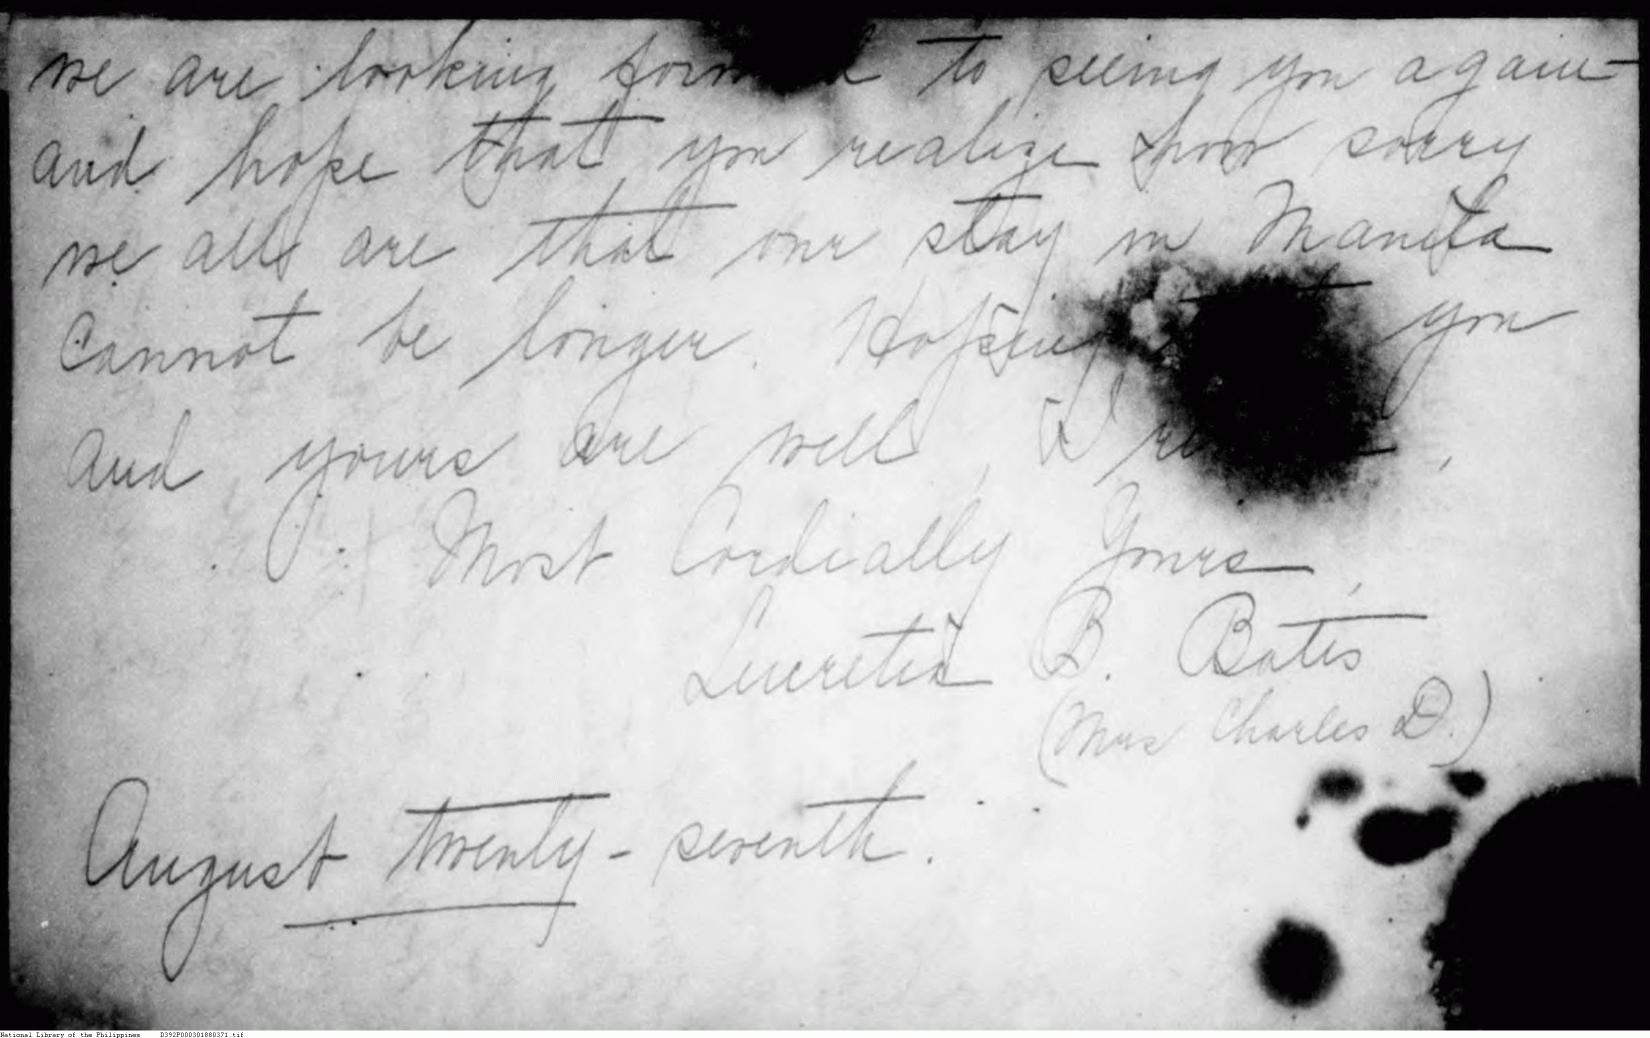 we are looking forward to seeing you again
and hope that you realize how sorry
we all are that our stay in Manila
Cannot be longer. Hoping that you
and yours are well, I
Most Cordially Yours,
Lucretia B. Bates
(Mrs Charles D.)
August twenty-seventh.
National Library of the Philippines D392P000301880371.tif